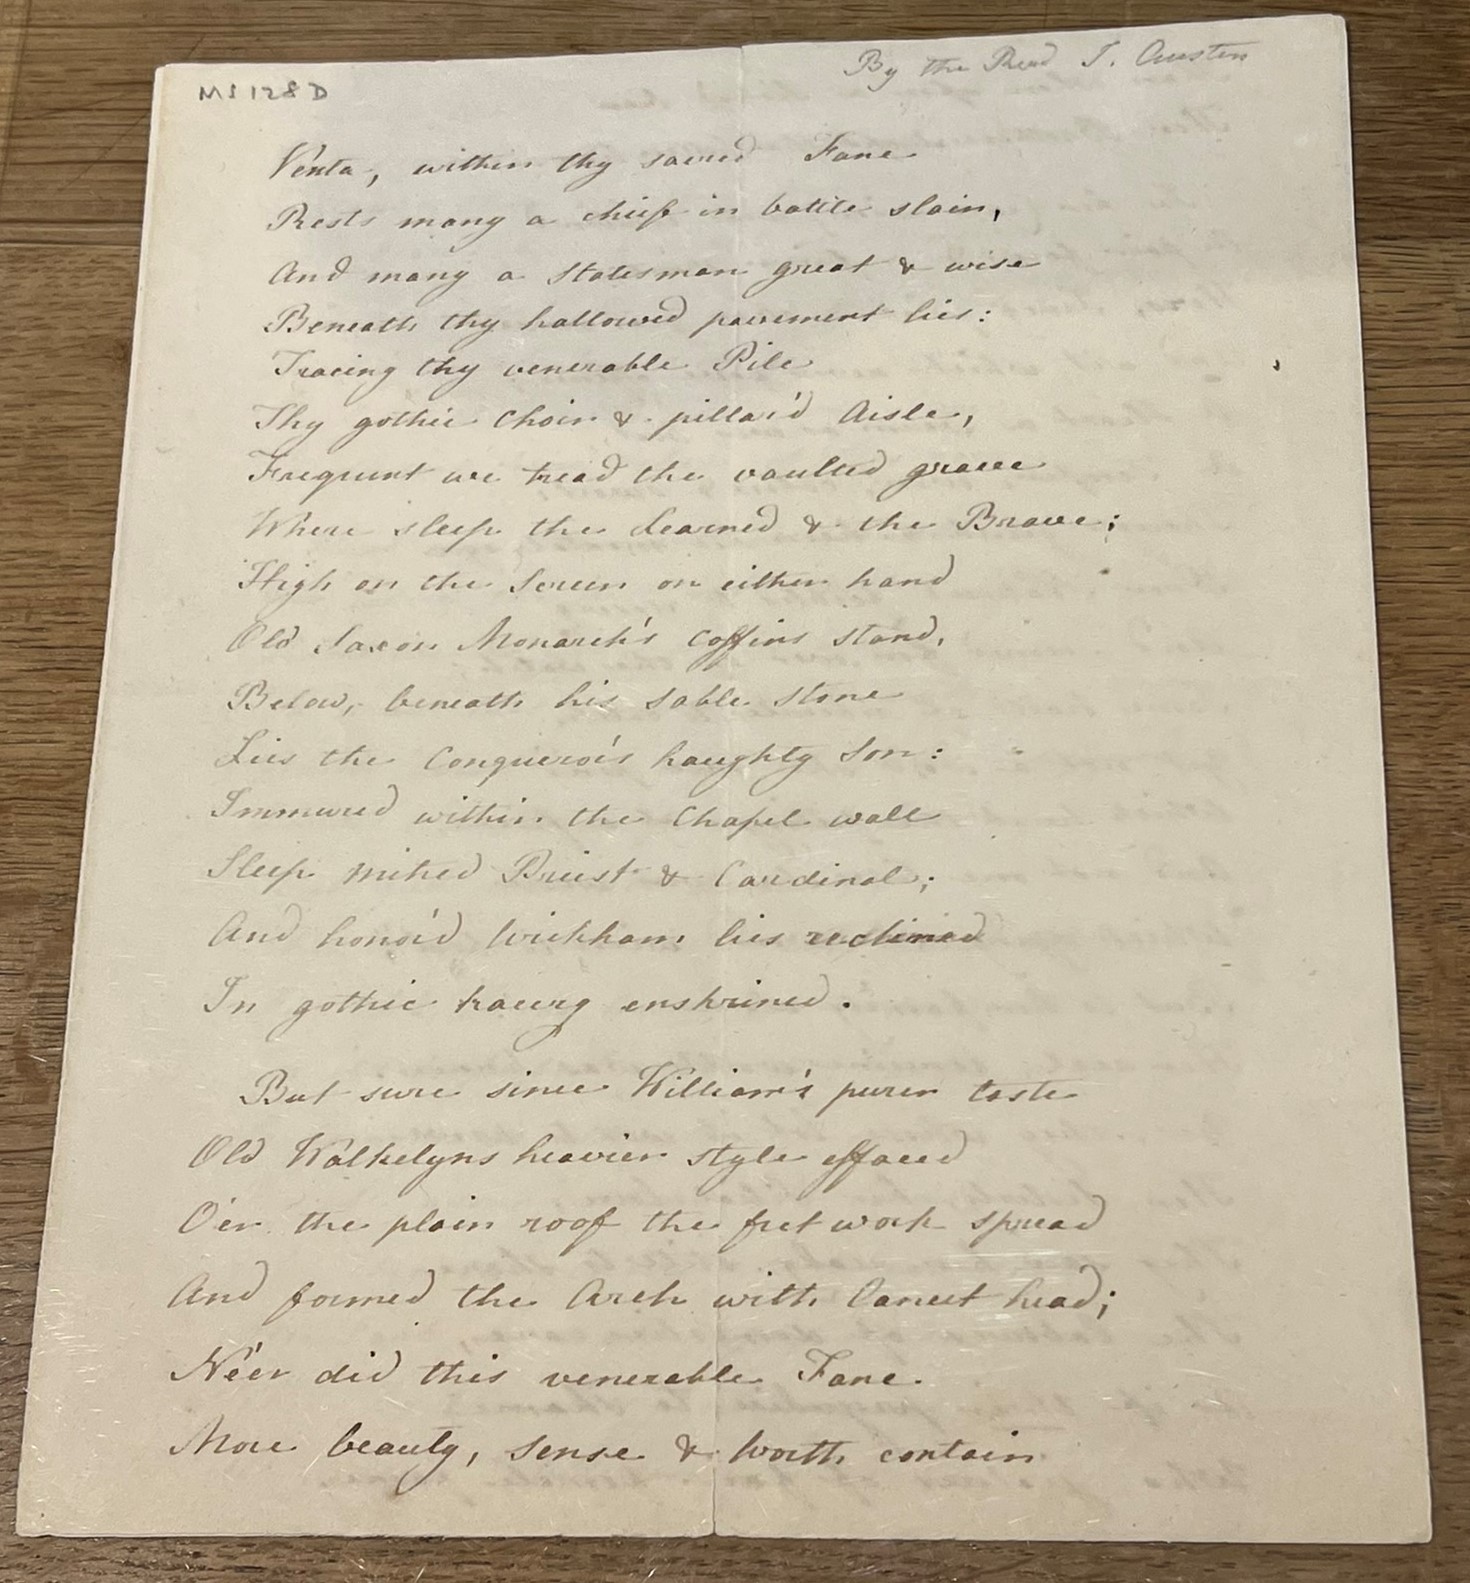 MS 128 D
By the Revd J. Austen
Venta, within thy sacred Fane
Rests many a chief in battle slain,
And many a Statesman great & wise
Beneath thy hallowed pavement lies:
Tracing thy venerable Pile
Thy gothic Choir & pillar'd Aisle,
Frequent we tread the vaulted grave
Where sleep the Learned & the Brave;
High on the Screen on either hand
Old Saxon Monarch's coffins stand,
Below, beneath his sable stone
Lies the Conqueror's haughty Son:
Immured within the Chapel wall
Sleep mitred Priest & Cardinal;
And honor'd Wickham lies reclined
In gothic tracery enshrined.
But sure since William's purer taste
Old Walkelyns heavier style effaced
O'er the plain roof the fret work spread
And formed the Arch with lancet head;
Ne'er did this venerable Fane
More beauty, sense & worth contain